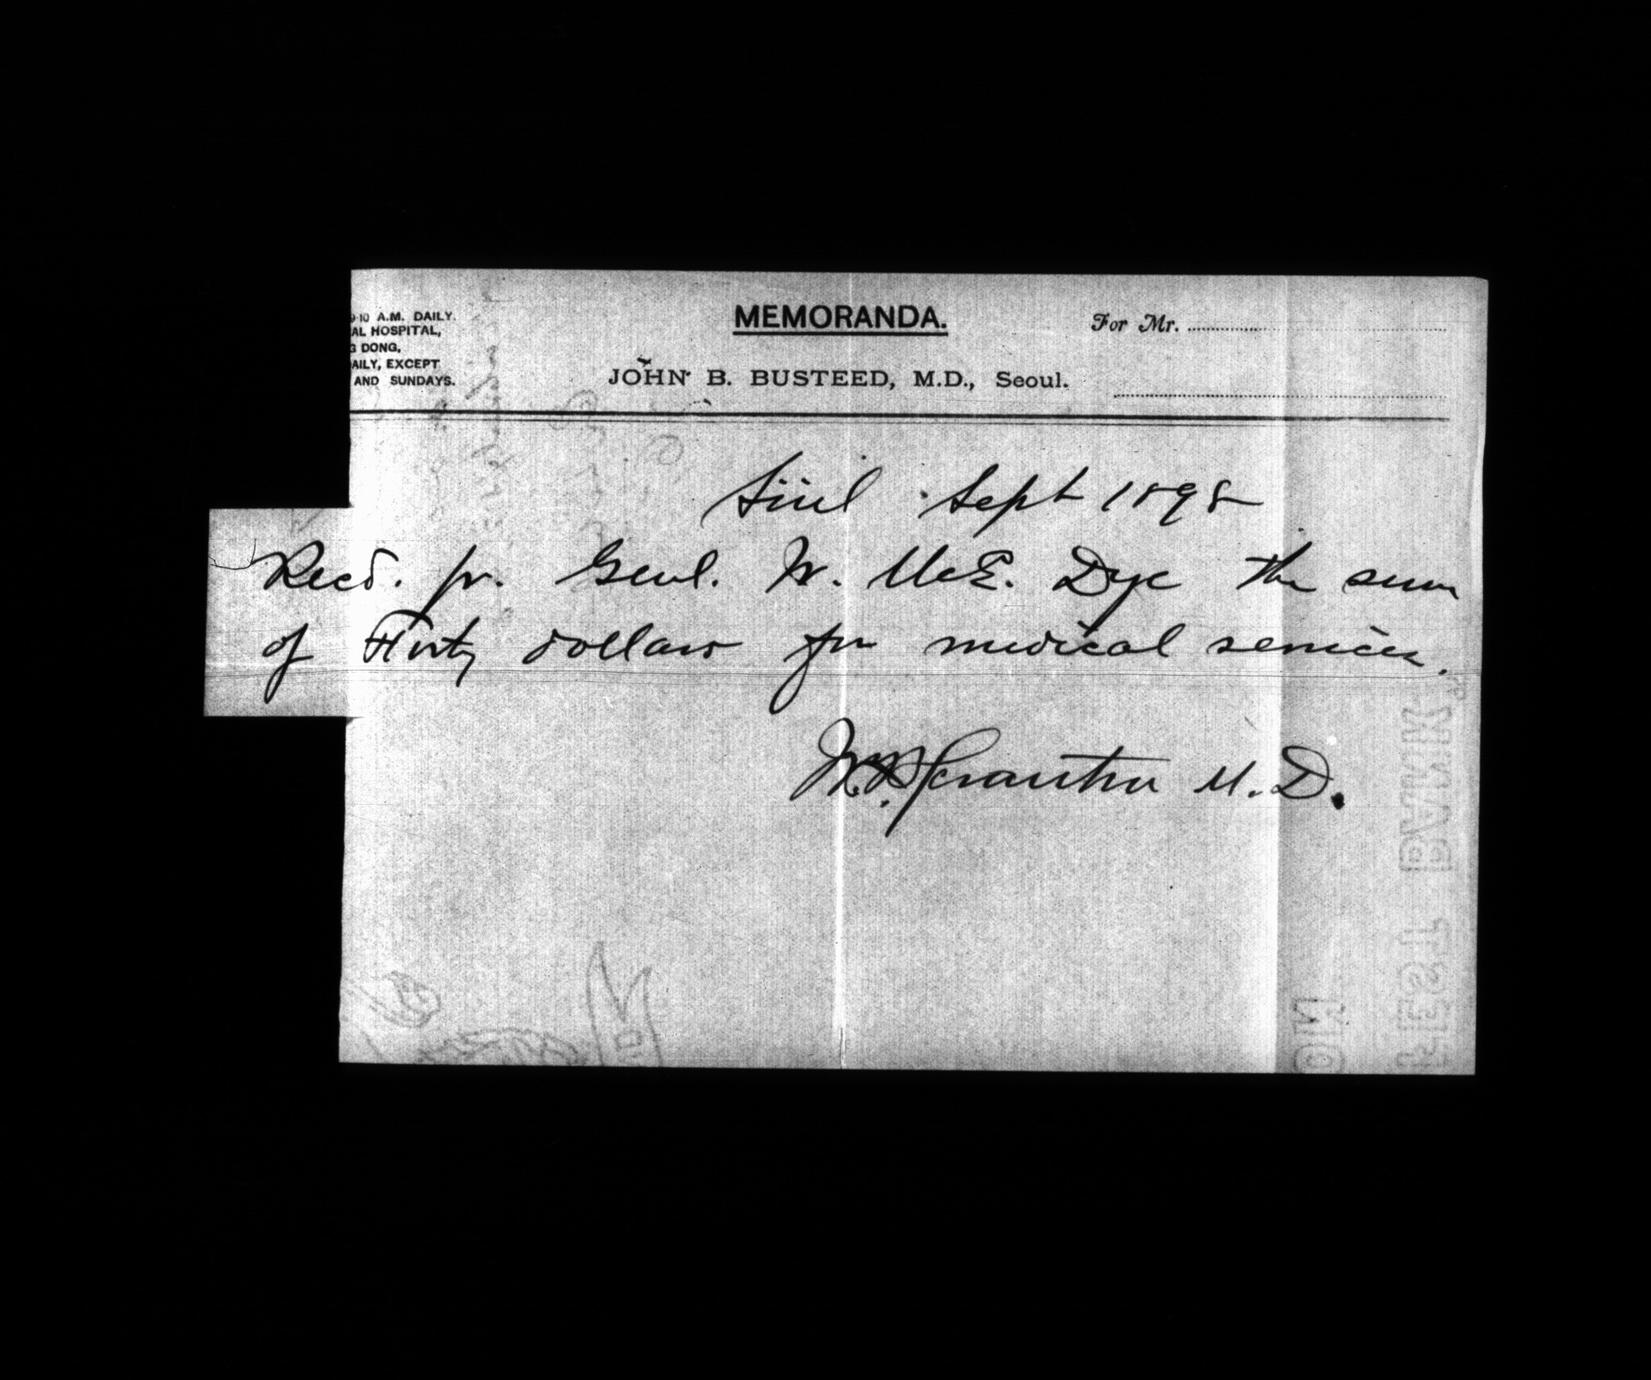 9-10 A.M. DAILY.
AL HOSPITAL,
G DONG,
AILY, EXCEPT
AND SUNDAYS.
MEMORANDA.
JOHN B. BUSTEED, M.D., Seoul.
For Mr.
Söul Sept 1898
Recd. fr. Genl. W. McE. Dye the sum
of Forty dollars for medical services.
W. B. Scranton M.D.